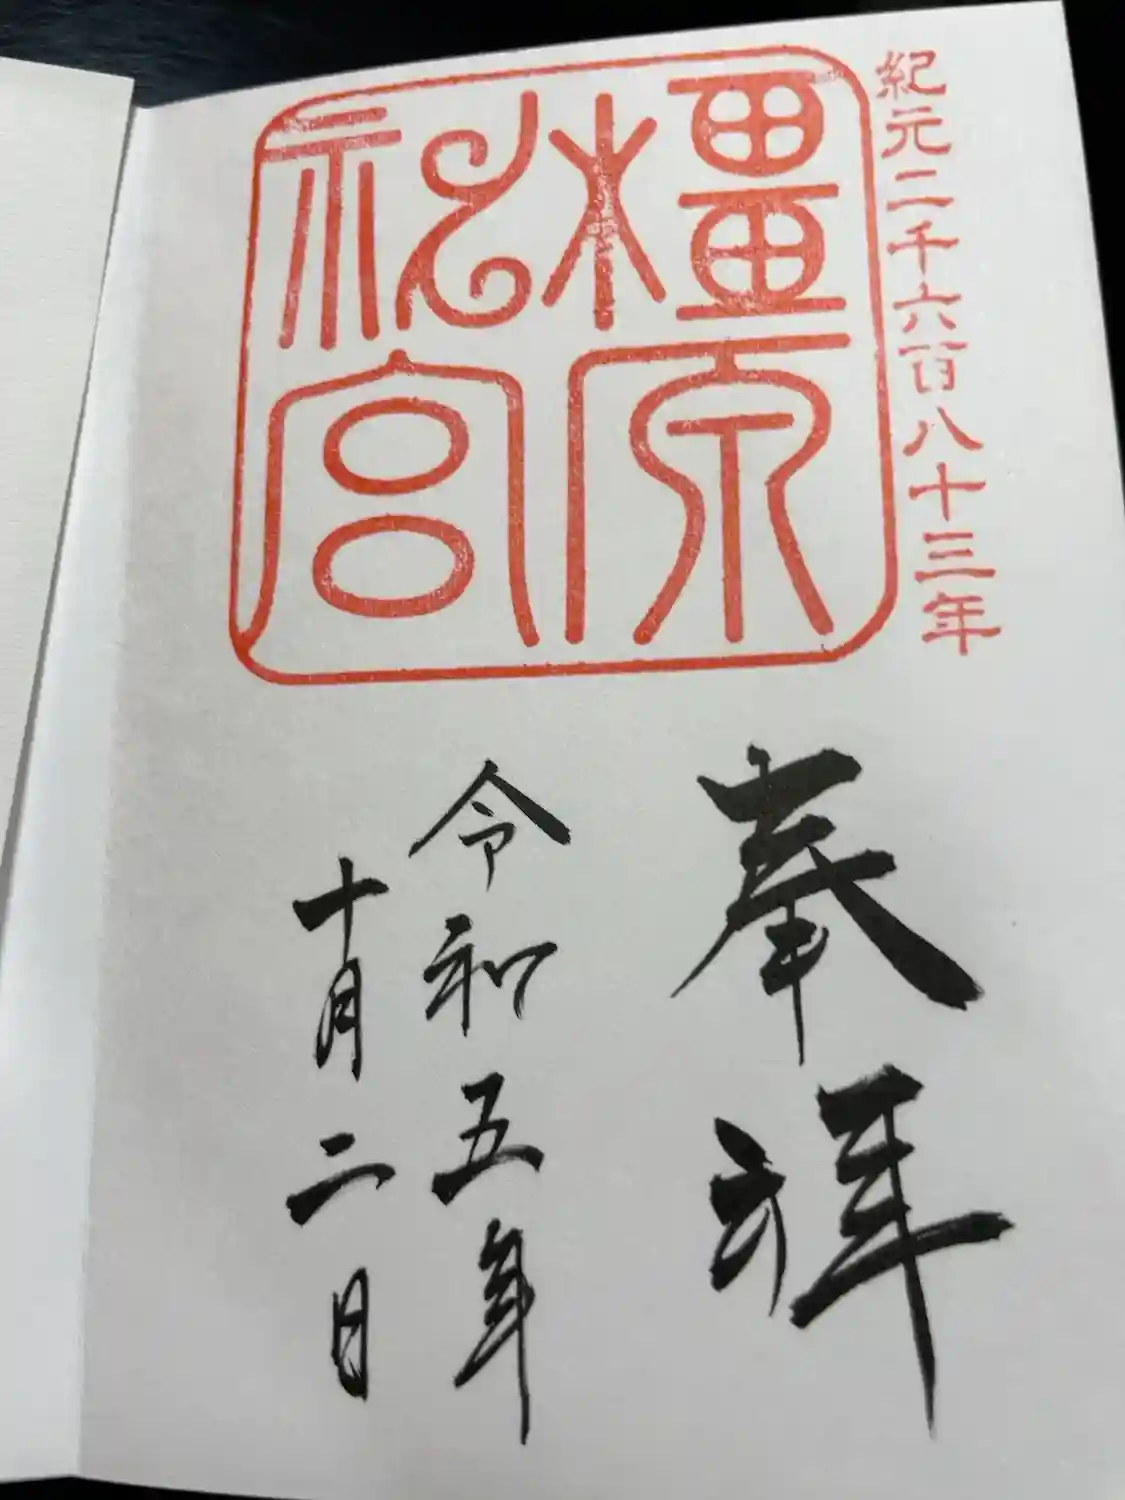 紀元二千六百八十三年
橿原
神宮
奉拝
令和五年
十月二日